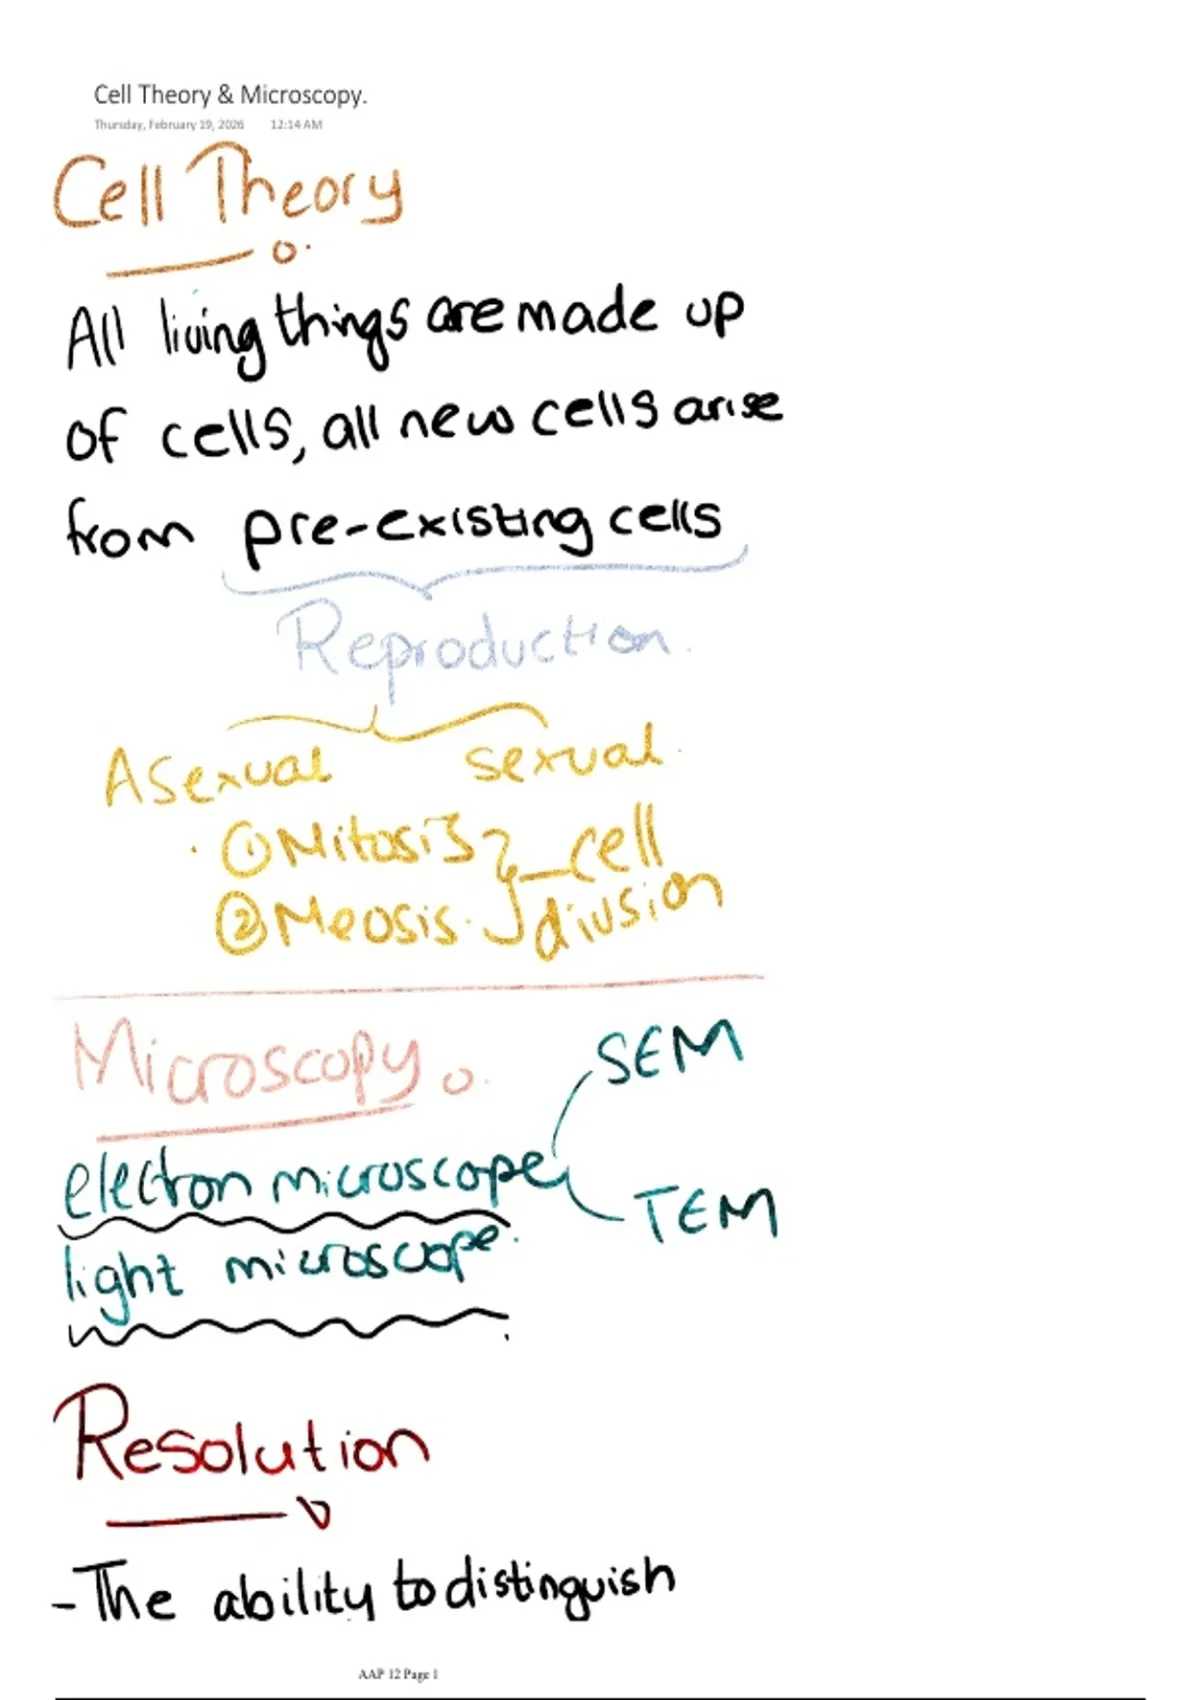 Cell Theory & Microscopy.
Thursday, February 19, 2026 12:14 AM
Cell Theory
All living things are made up
of cells, all new cells arise
from pre-existing cells
Reproduction.
Asexual sexual.
① Mitosis cell
② Meosis. divsion
Microscopy
SEM
electron microscope
TEM
light microscope.
Resolution
- The ability to distinguish
AAP 12 Page 1